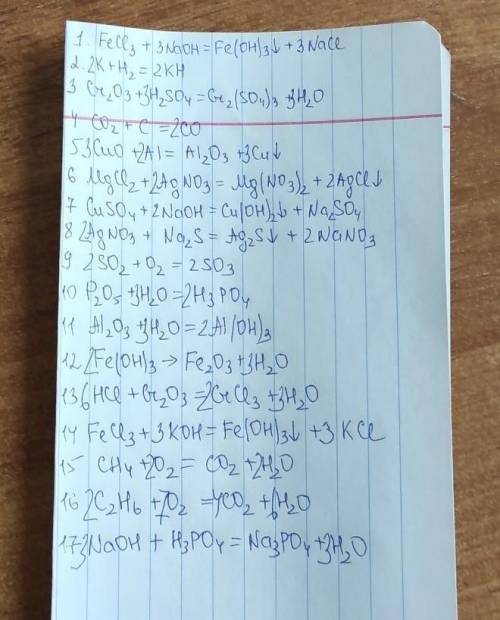 1. FeCl₃ + 3NaOH = Fe(OH)₃↓ + 3NaCl
2. 2K + H₂ = 2KH
3 Cr₂O₃ + 3H₂SO₄ = Cr₂(SO₄)₃ + 3H₂O
4 CO₂ + C = 2CO
5 3CuO + 2Al = Al₂O₃ + 3Cu↓
6 MgCl₂ + 2AgNO₃ = Mg(NO₃)₂ + 2AgCl↓
7 CuSO₄ + 2NaOH = Cu(OH)₂↓ + Na₂SO₄
8 2AgNO₃ + Na₂S = Ag₂S↓ + 2NaNO₃
9 2SO₂ + O₂ = 2SO₃
10 P₂O₅ + 3H₂O = 2H₃PO₄
11 Al₂O₃ + 3H₂O = 2Al(OH)₃
12 2Fe(OH)₃ → Fe₂O₃ + 3H₂O
13 6HCl + Cr₂O₃ = 2CrCl₃ + 3H₂O
14 FeCl₃ + 3KOH = Fe(OH)₃↓ + 3KCl
15 CH₄ + 2O₂ = CO₂ + 2H₂O
16 2C₂H₆ + 7O₂ = 4CO₂ + 6H₂O
17 3NaOH + H₃PO₄ = Na₃PO₄ + 3H₂O